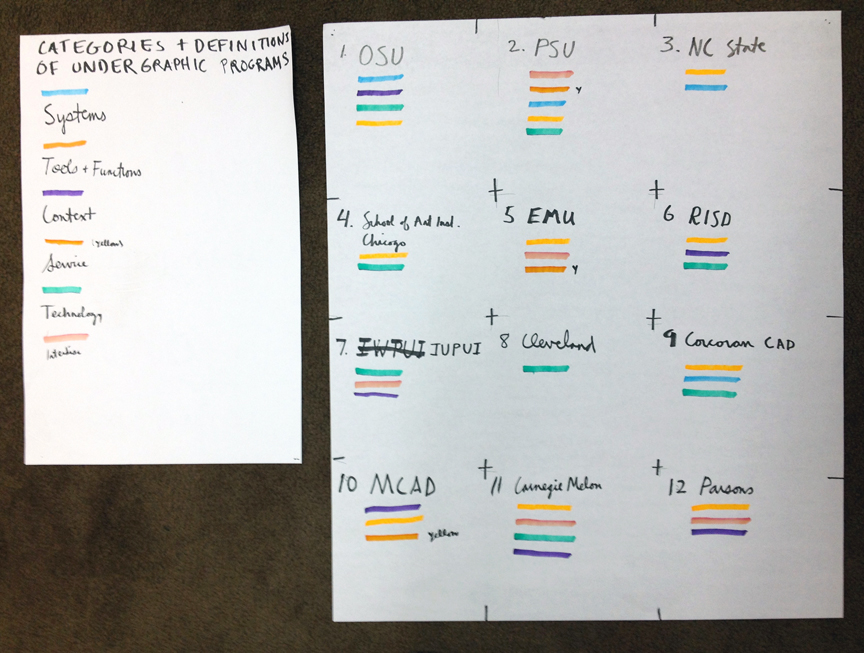 CATEGORIES + DEFINITIONS
OF UNDERGRAPHIC PROGRAMS
Systems
Tools + Functions
Context
(yellow)
Service
Technology
Intention
1. OSU
2. PSU
Y
3. NC State
4. School of Art Inst.
Chicago
5 EMU
Y
6 RISD
7. IWPUI IUPUI
8 Cleveland
9 Corcoran CAD
10 MCAD
yellow
11 Carnegie Melon
12 Parsons